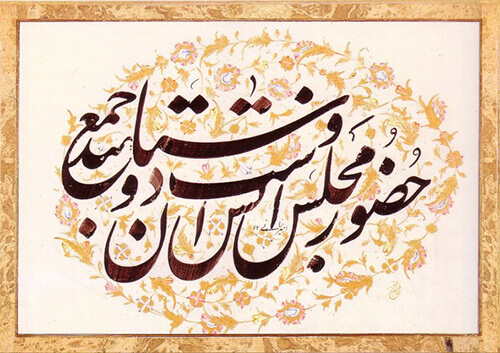 حُضُور مجلس اُنس است و دوستان جمعند